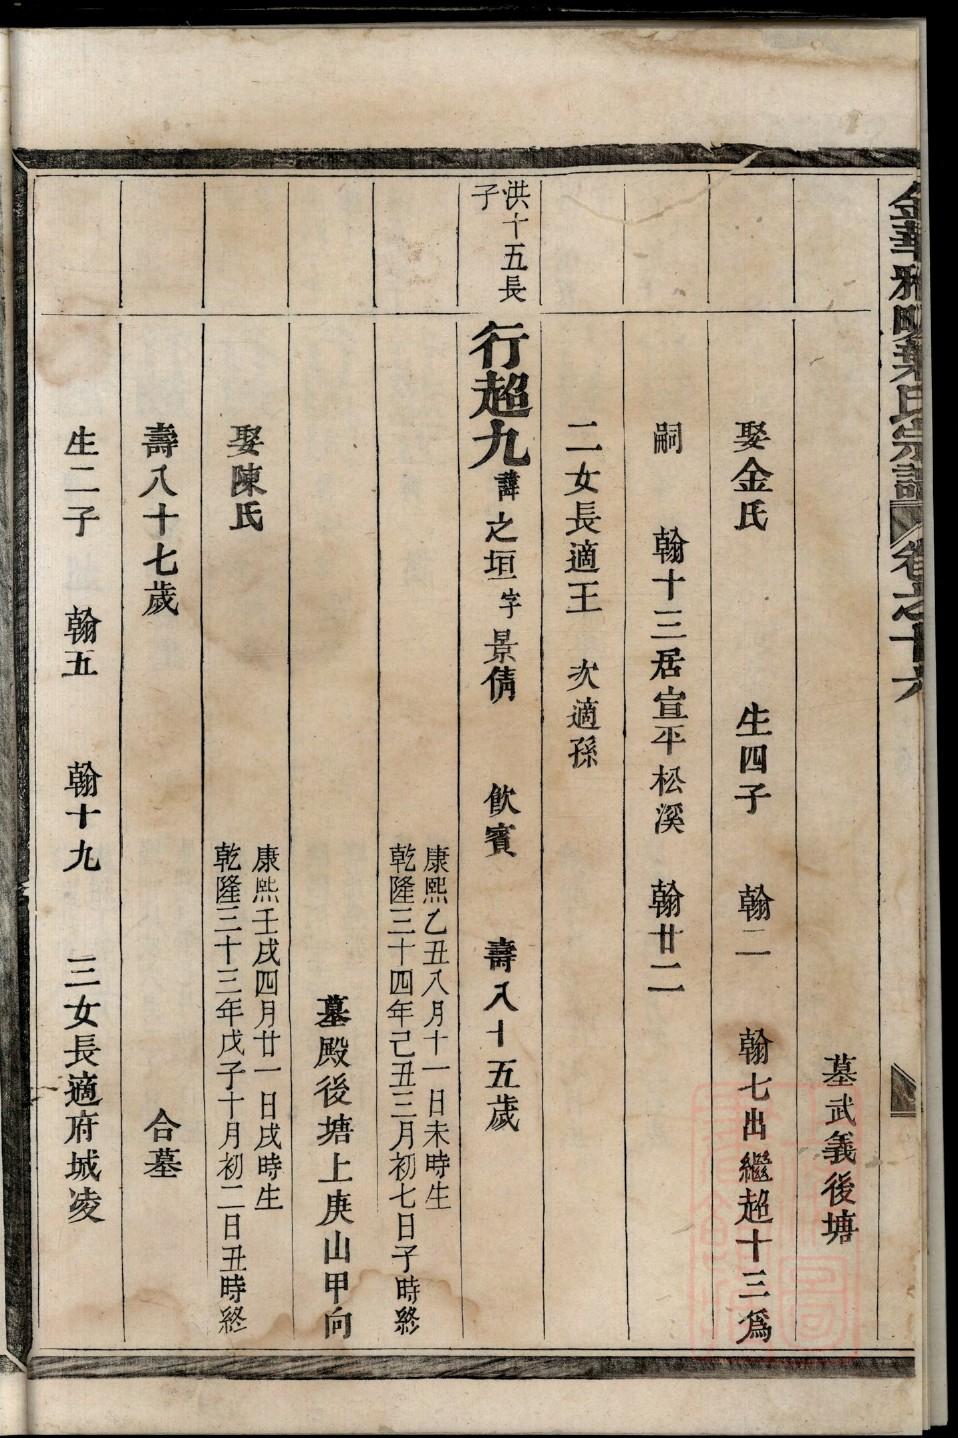 金華雅畈葉氏宗譜 卷之十六
墓武義後塘
娶金氏 生四子 翰二 翰七出繼超十三爲
嗣 翰十三居宣平松溪 翰廿二
二女長適王 次適孫
洪十五長
子
行超九 諱之垣字景倩 飲賓 壽八十五歲
康熙乙丑八月十一日未時生
乾隆三十四年己丑三月初七日子時終
墓殿後塘上庚山甲向
娶陳氏
康熙壬戌四月廿一日戌時生
乾隆三十三年戊子十月初二日丑時終
壽八十七歲 合墓
生二子 翰五 翰十九 三女長適府城凌